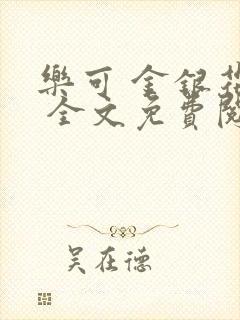 樂可 金銀花
全文免費閱
吳在德